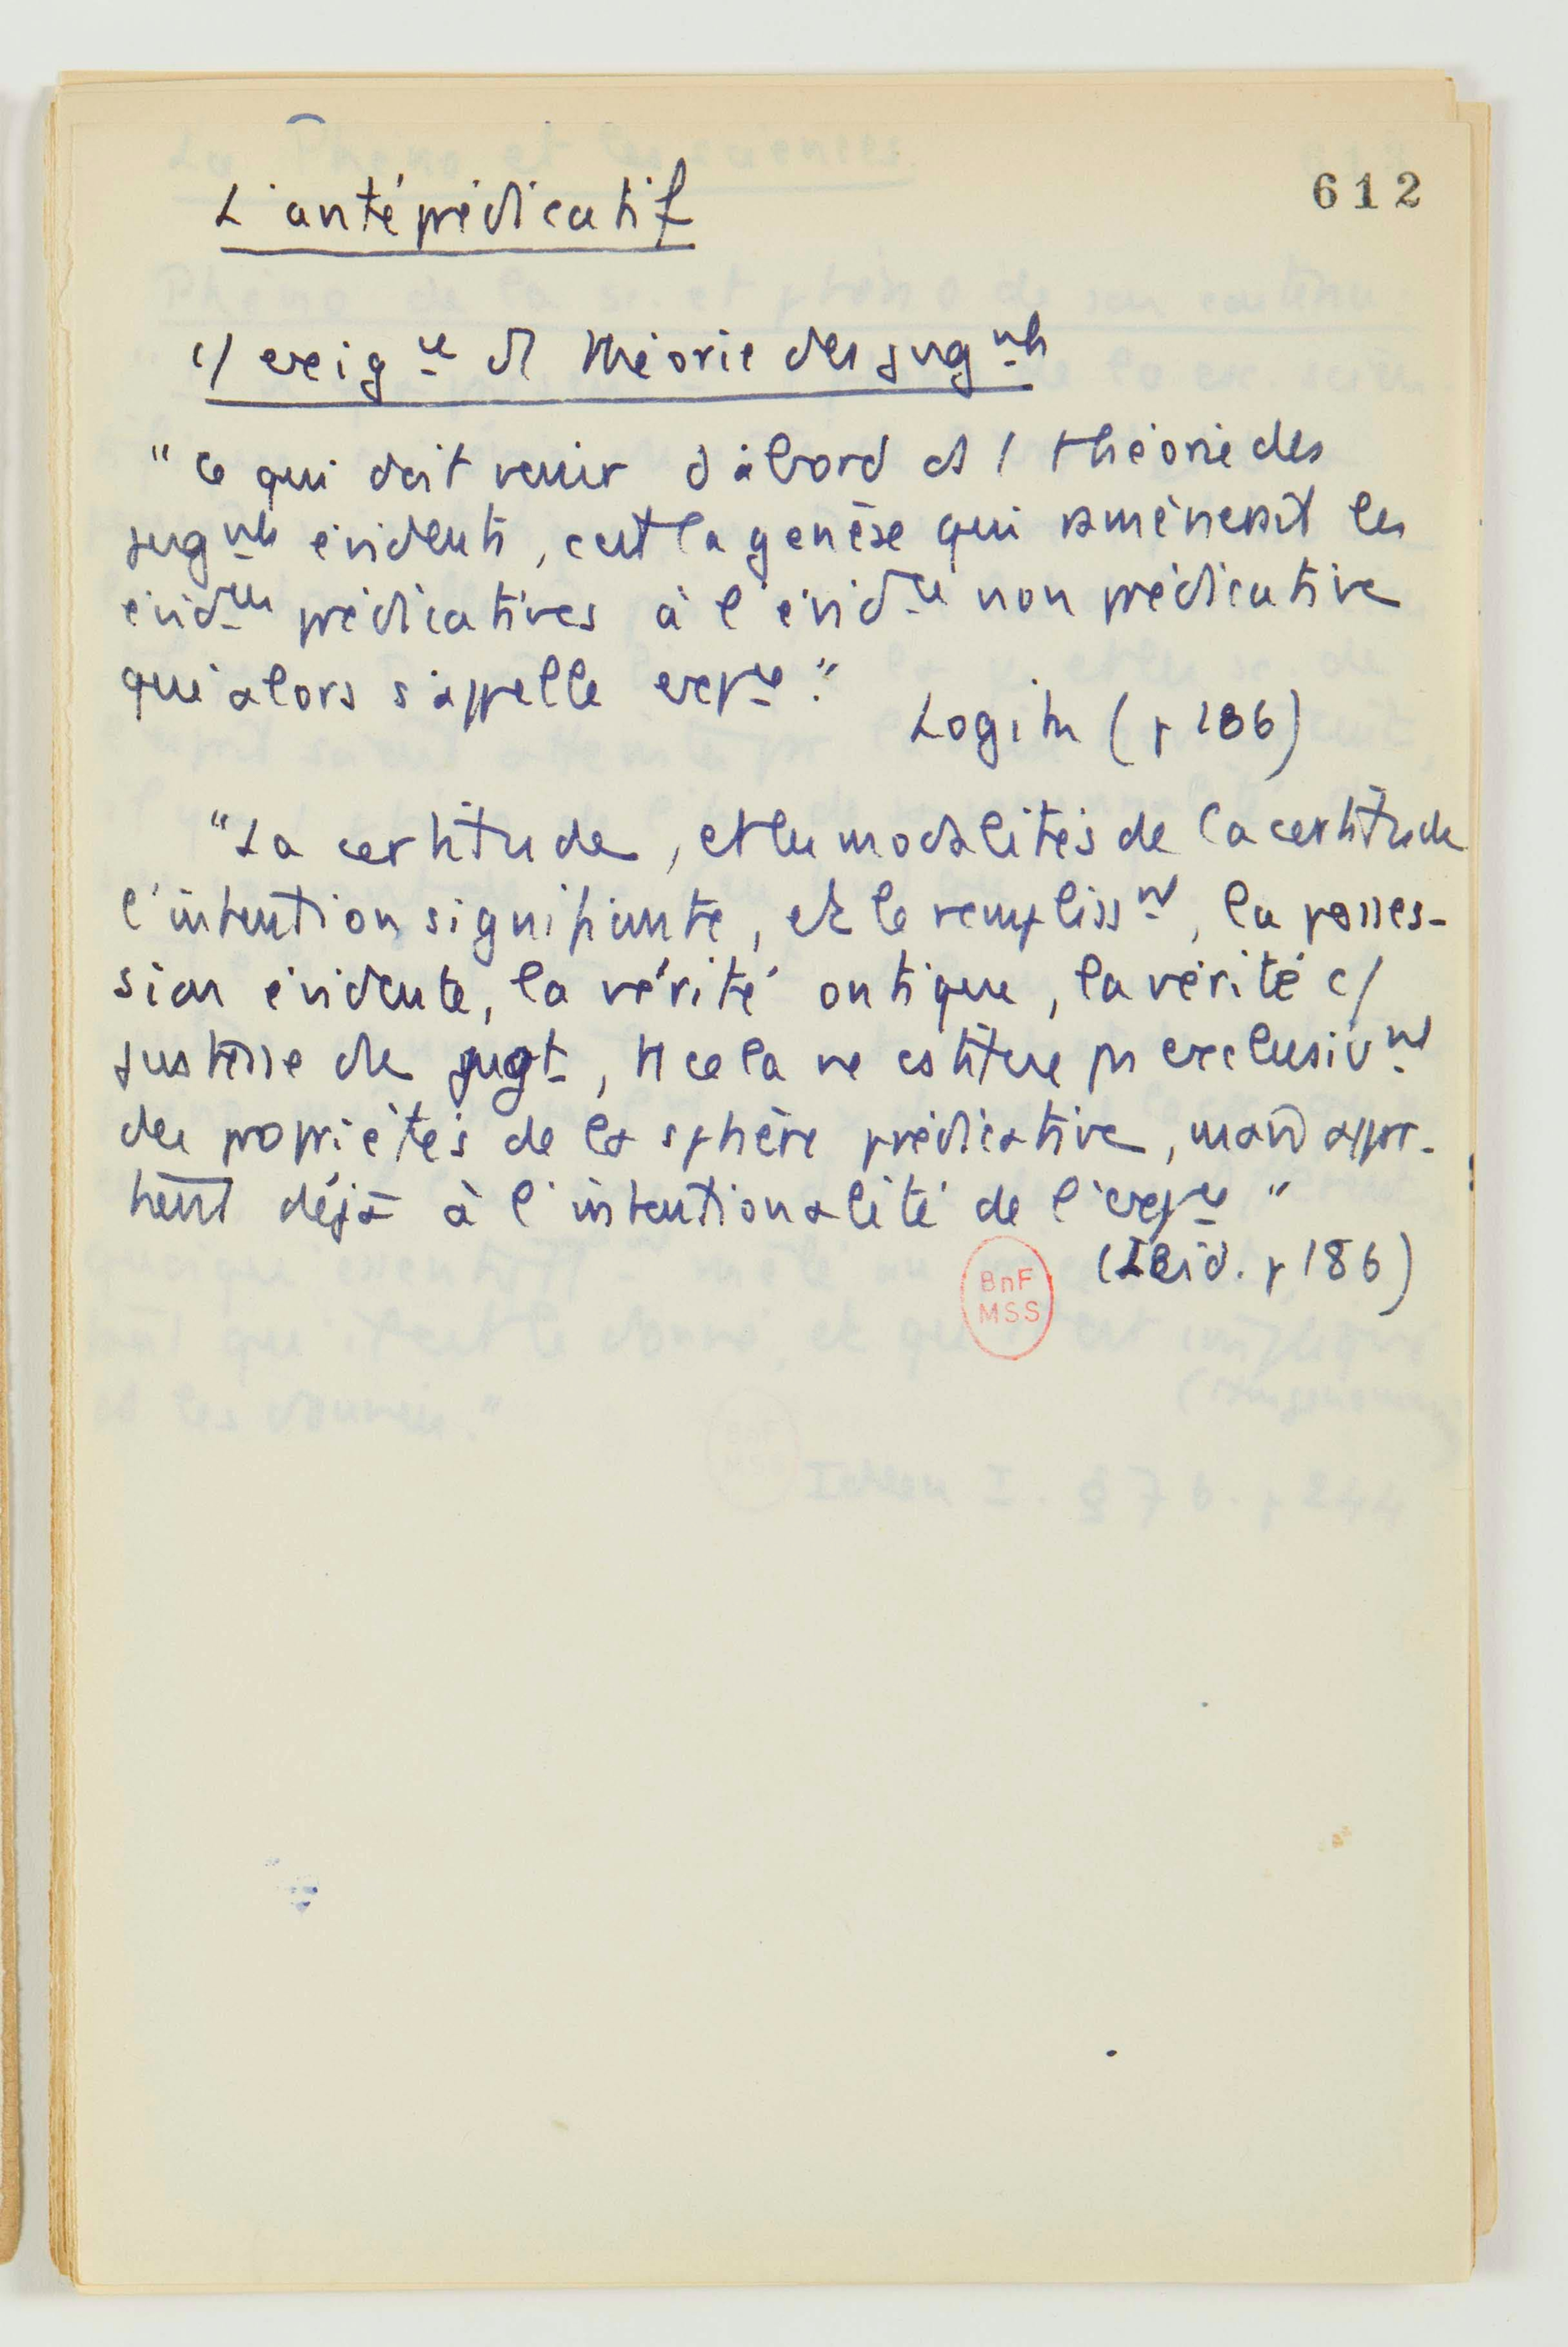 612
L'antéprédicatif
c/ exigce d1 théorie des jugnts
"Ce qui doit venir d'abord ds 1 théorie des
jugnts évidents, c'est la genèse qui ramènerait les
évidces prédicatives à l'évidce non prédicative
qui alors s'appelle expce."
Logik (p 186)
"La certitude, et les modalités de la certitude
l'intention signifiante, et le remplissnt, la posses-
sion évidente, la vérité ontique, la vérité c/
justesse de jugt, tt cela ne cstitue ps exclusivnt
des propriétés de la sphère prédicative, mais appar-
tient déjà à l'intentionalité de l'expce"
(Ibid. p 186)
BnF
MSS